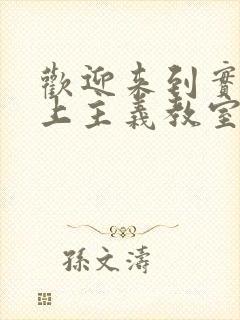 歡迎来到實
上主義教室
孫文濤